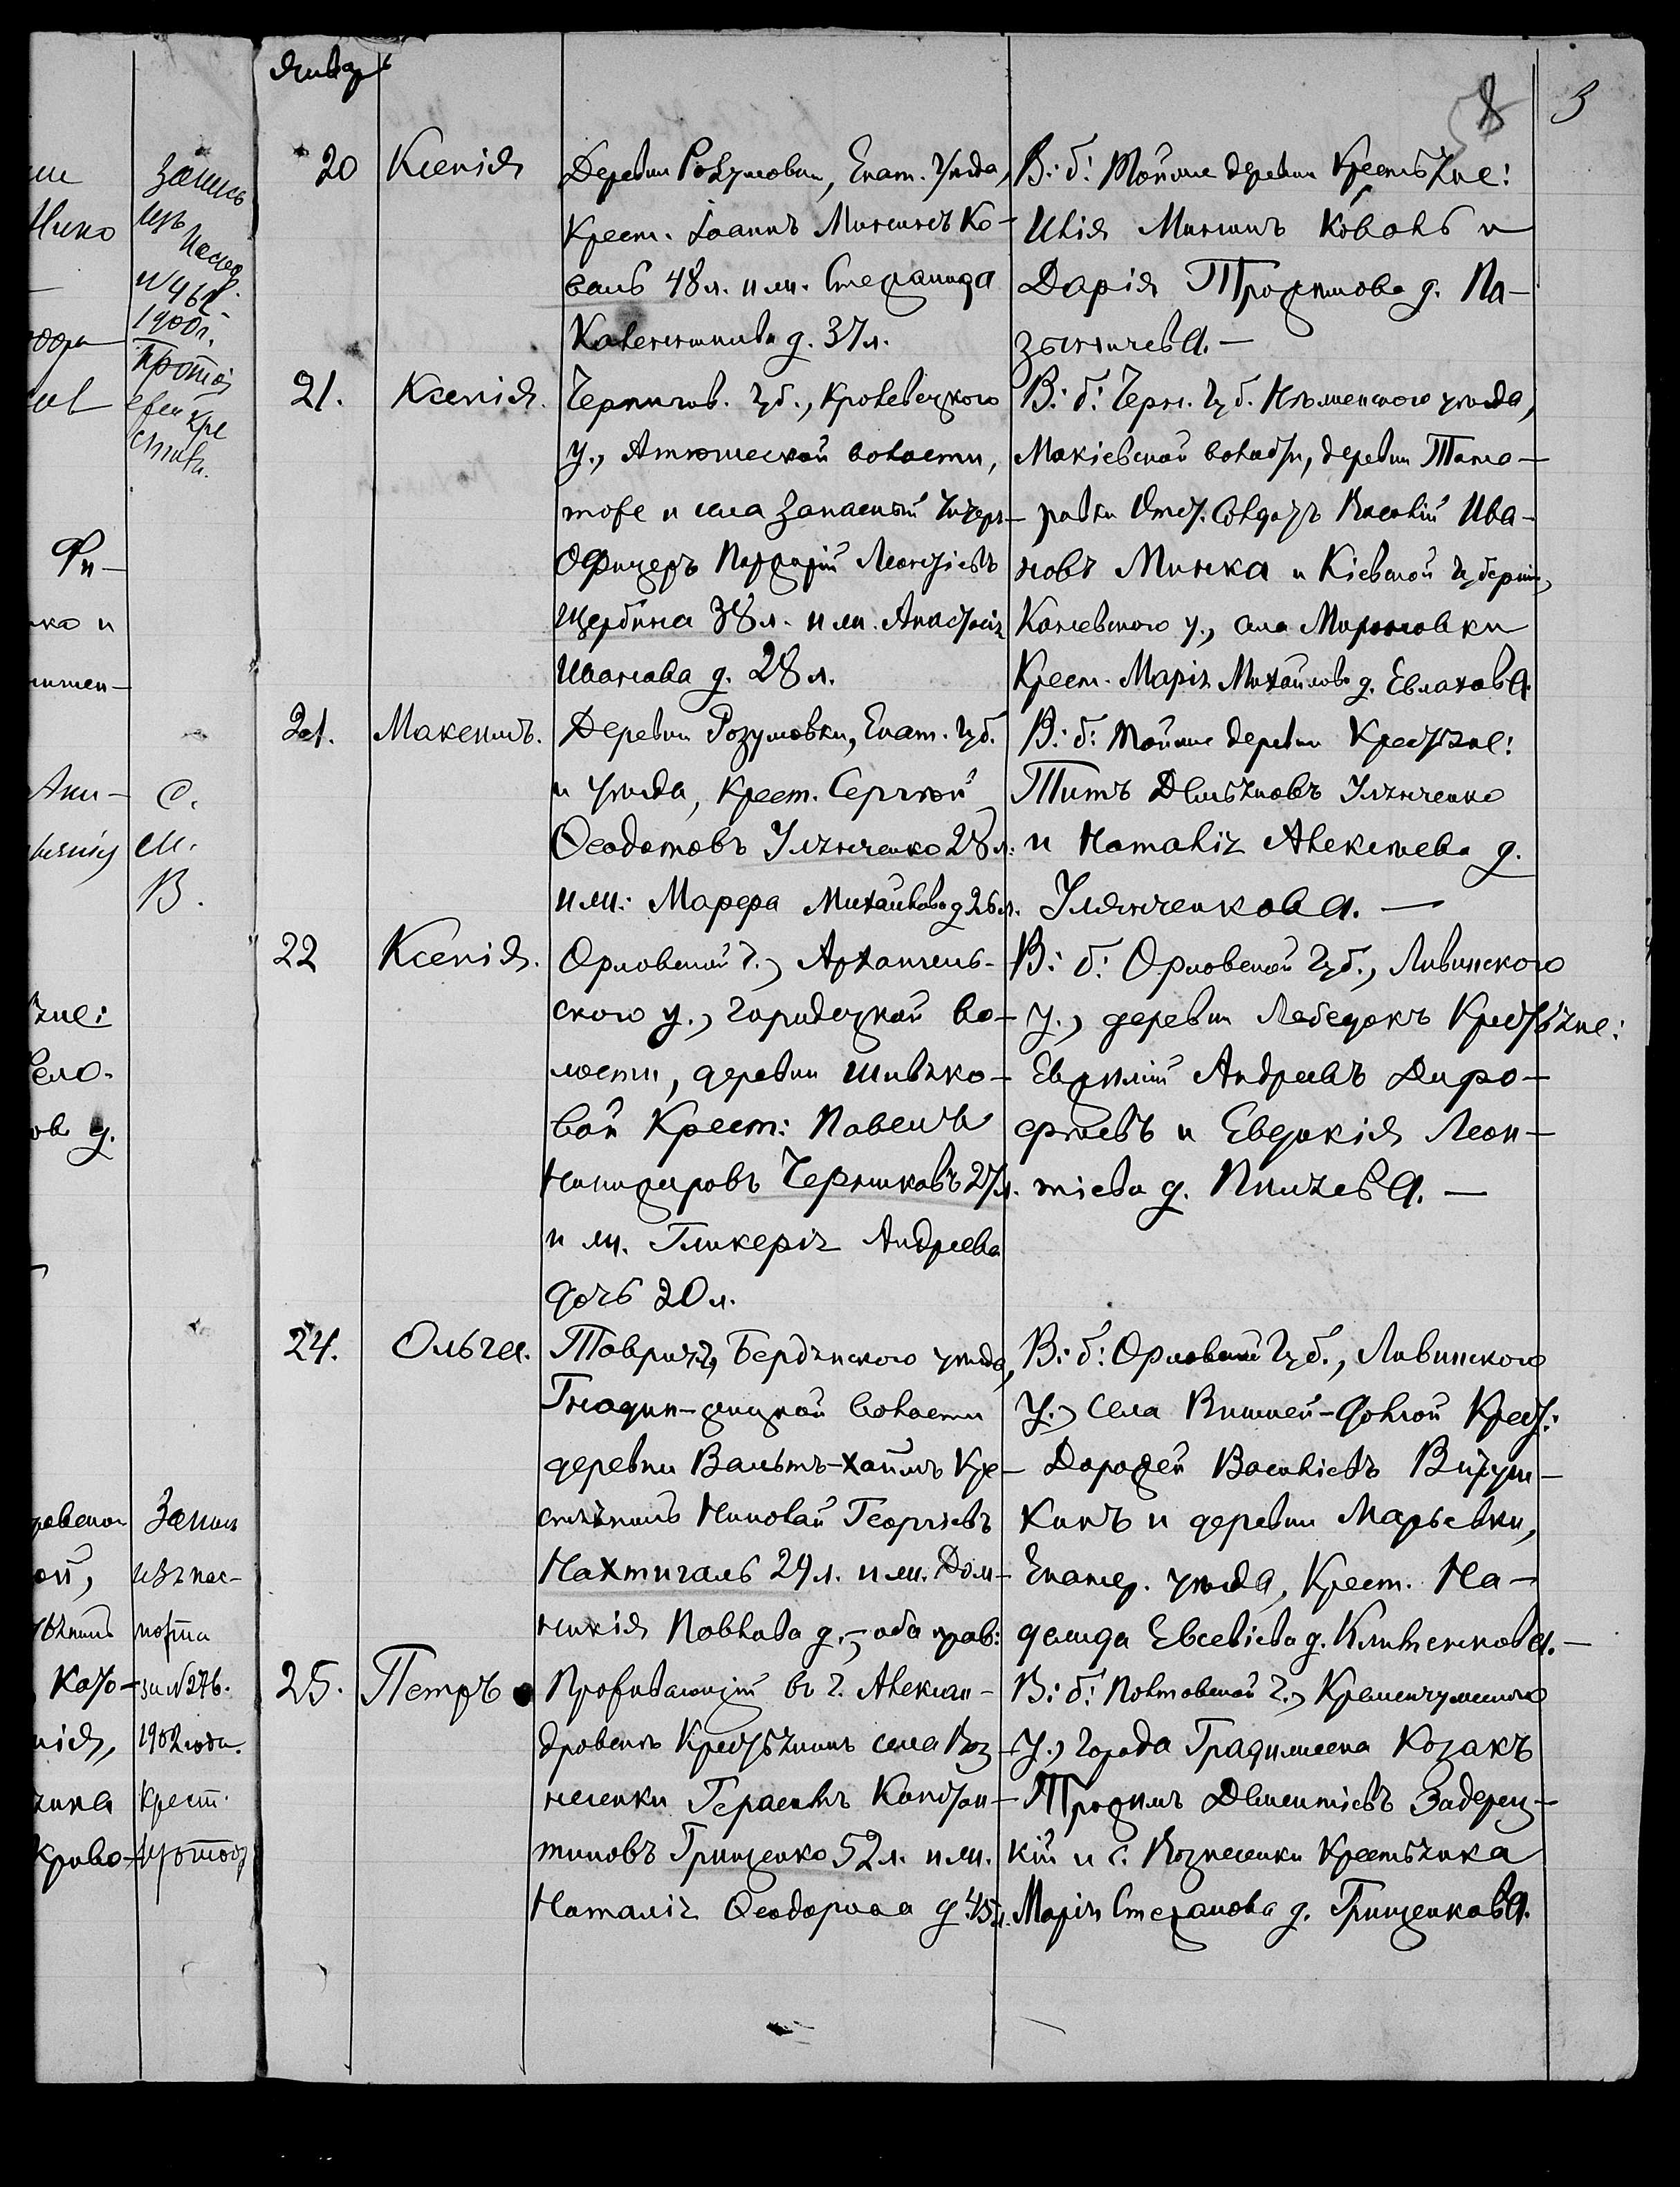 Январь
8 3
20 Ксенія
Деревни Розумовки, Екат. Уѣзда,
Крест. Іоаннъ Мининъ Ко-
валь 48 л. и жи. Стефанида
Каленникова д. 37 л.
В: б: Тойже деревни Крестьяне:
Илія Мининъ Коваль и
Дарія Трофимова д. Па-
зыничева. —
21. Ксенія.
Чернигов. Губ., Кролевецкого
у., Атюшеской волости,
тоже и села запасный Унтеръ-
Офицеръ Порфирій Леонтіевъ
Щербина 38 л. и жи. Анастасія
Иванова д. 28 л.
В: б: Черн. Губ. Нѣжинского уѣзда,
Макіевской волости, деревни Тата-
ровки Отст. Солдатъ Василій Ива-
новъ Минка и Кіевской Губерніи,
Каневского у., села Мироновки
Крест. Марія Михайлова д. Евлахова.
21. Максимъ.
Деревни Розумовки, Екат. Губ.
и Уѣзда, Крест. Сергѣй
Ѳеодотовъ Улянченко 28 л.
и жи: Марѳа Михайлова д 26 л.
В: б: Тойже деревни Крестьяне:
Титъ Демьяновъ Улянченко
и Наталія Алексѣева д.
Улянченкова. —
22 Ксенія.
Орловской г., Архангель-
ского у., Городецкой во-
лости, деревни Шивяко-
вой Крест: Павелъ
Никифоровъ Черниковъ 27 л.
и жи. Гликерія Андреева
дочь 20 л.
В: б: Орловской Губ., Ливинского
у., деревни Лебедокъ Крестьяне:
Евфимій Андреевъ Доро-
феевъ и Евдокія Леон-
тіева д. Пничева. —
24. Ольга.
Таврич. г., Бердянского уѣзда,
Гнаден-фельдской волости
деревни Вальтъ-Хаймъ Кре-
стьянинъ Николай Георгіевъ
Нахтигаль 29 л. и жи. Дом-
никія Павлова д., - оба прав:
В: б: Орловской Губ., Ливинского
У., села Вишней-Долгой Крест:
Дорофей Васильевъ
Кинъ и деревни Марьевки,
Екатер. уѣзда, Крест. На-
дежда Евсевіева д. Клименкова. —
25. Петръ
Проживающій въ г. Алексан-
дровскѣ Крестьянинъ села Воз-
несенки Герасимъ Констан-
тиновъ Грищенко 52 л. и жи.
Наталія Ѳеодорова д 45 л.
В: б: Полтовской г., Кременчугского
У., города Градижска Козакъ
Трофимъ Дементіевъ Задерец-
кій и с. Вознесенки Крестьянка
Марія Стефанова д. Грищенкова.
Запись
изъ
№ 462
1900 г.
С.
М.
В.
Запись
изъ пас-
порта
за №276.
1902 года.
Крест.